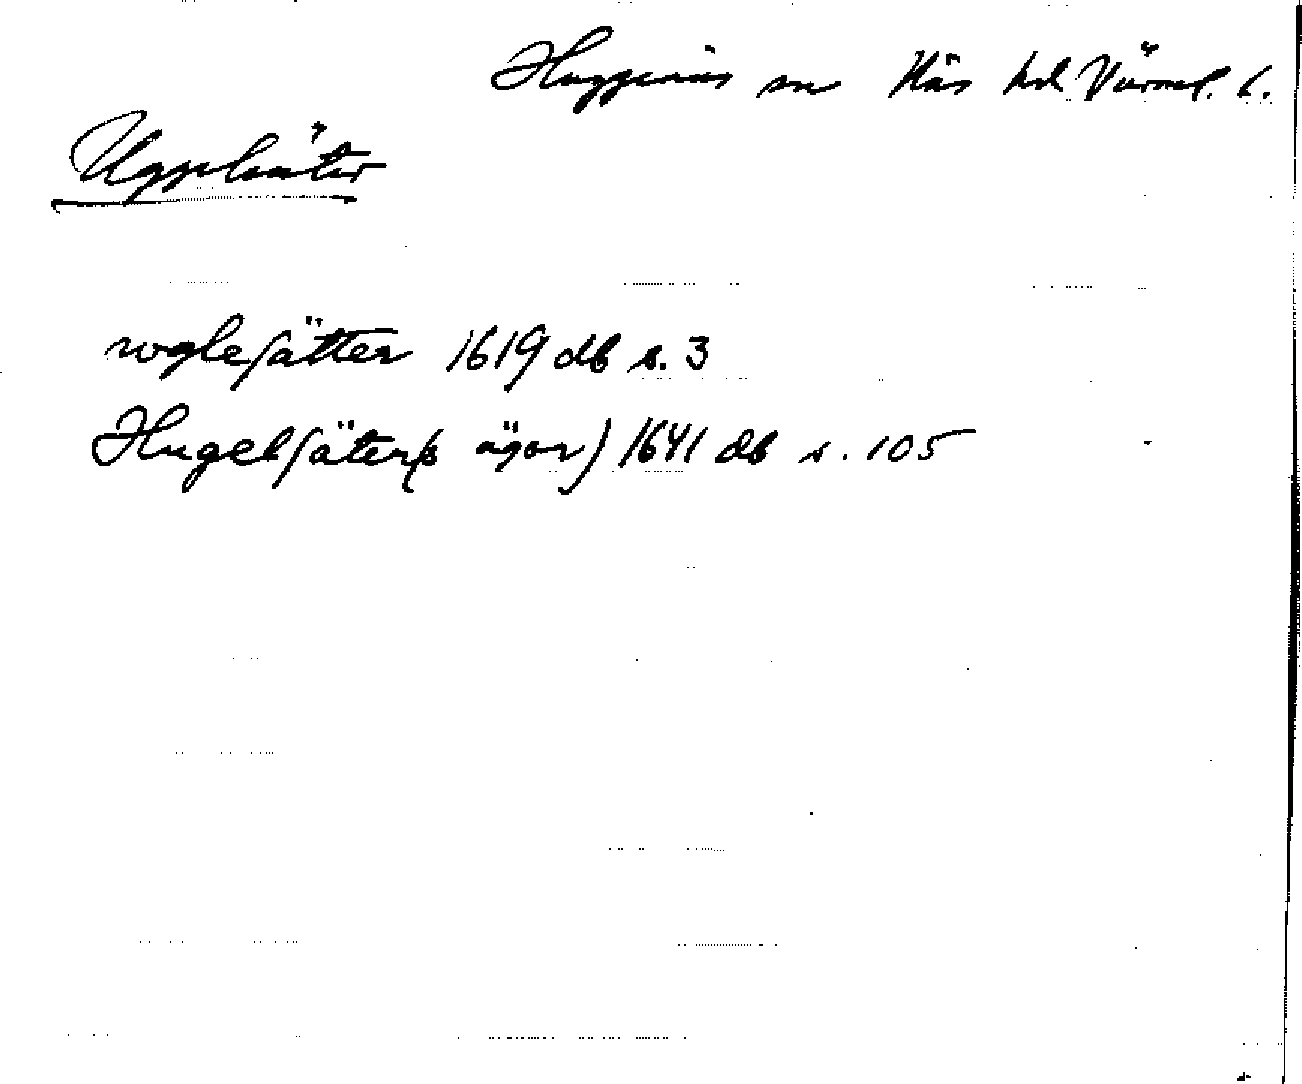 Huggenäs sn Näs hd Värml. l.
Ugglesäter
vglesätter 1619 db s. 3
Hugelsäter(s ägor) 1641 db s. 105